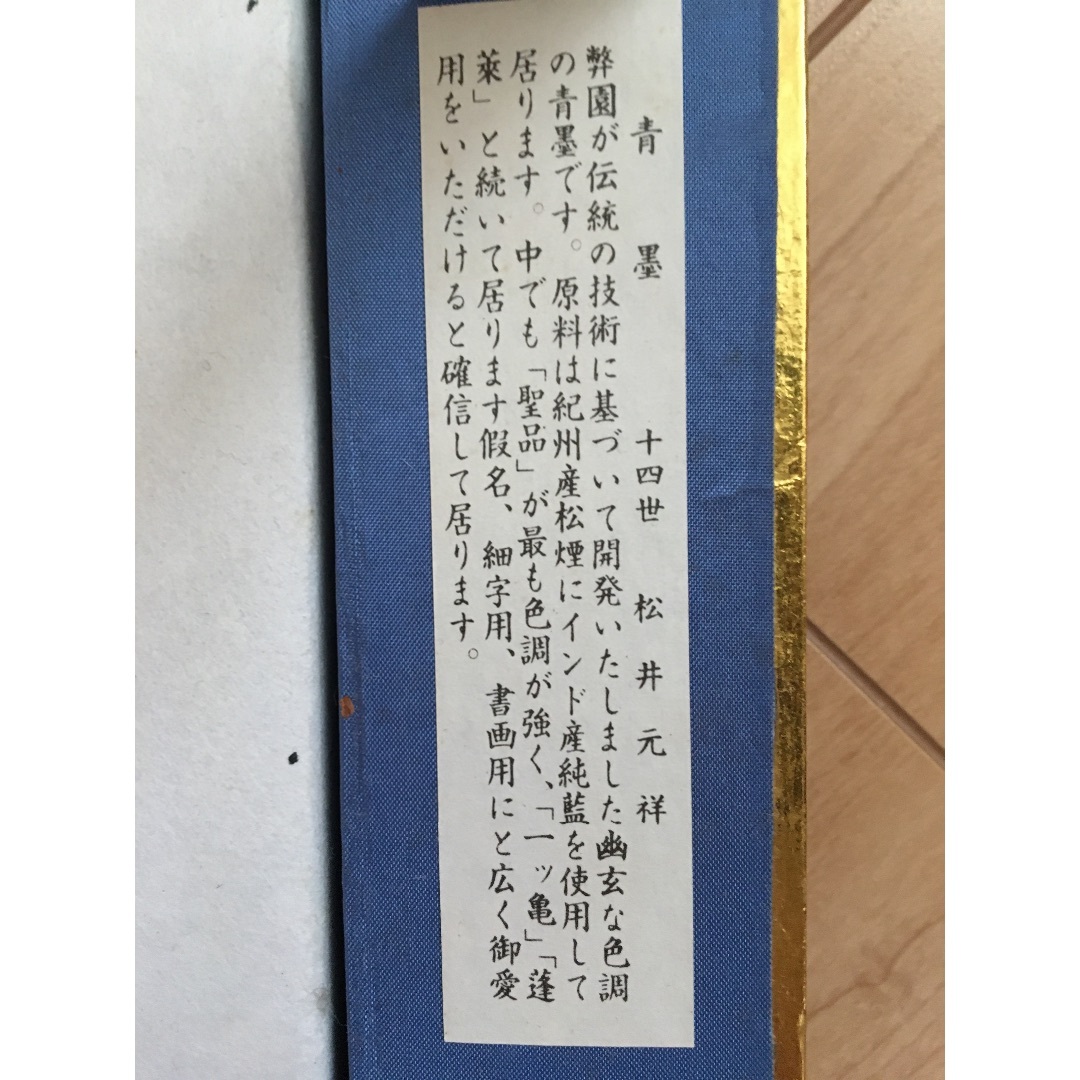 青墨 十四世 松井元祥
弊園が伝統の技術に基づいて開発いたしました幽玄な色調
の青墨です。原料は紀州産松煙にインド産純藍を使用して
居ります。中でも「聖品」が最も色調が強く、「一ッ亀」「蓬
莱」と続いて居ります假名、細字用、書画用にと広く御愛
用をいただけると確信して居ります。